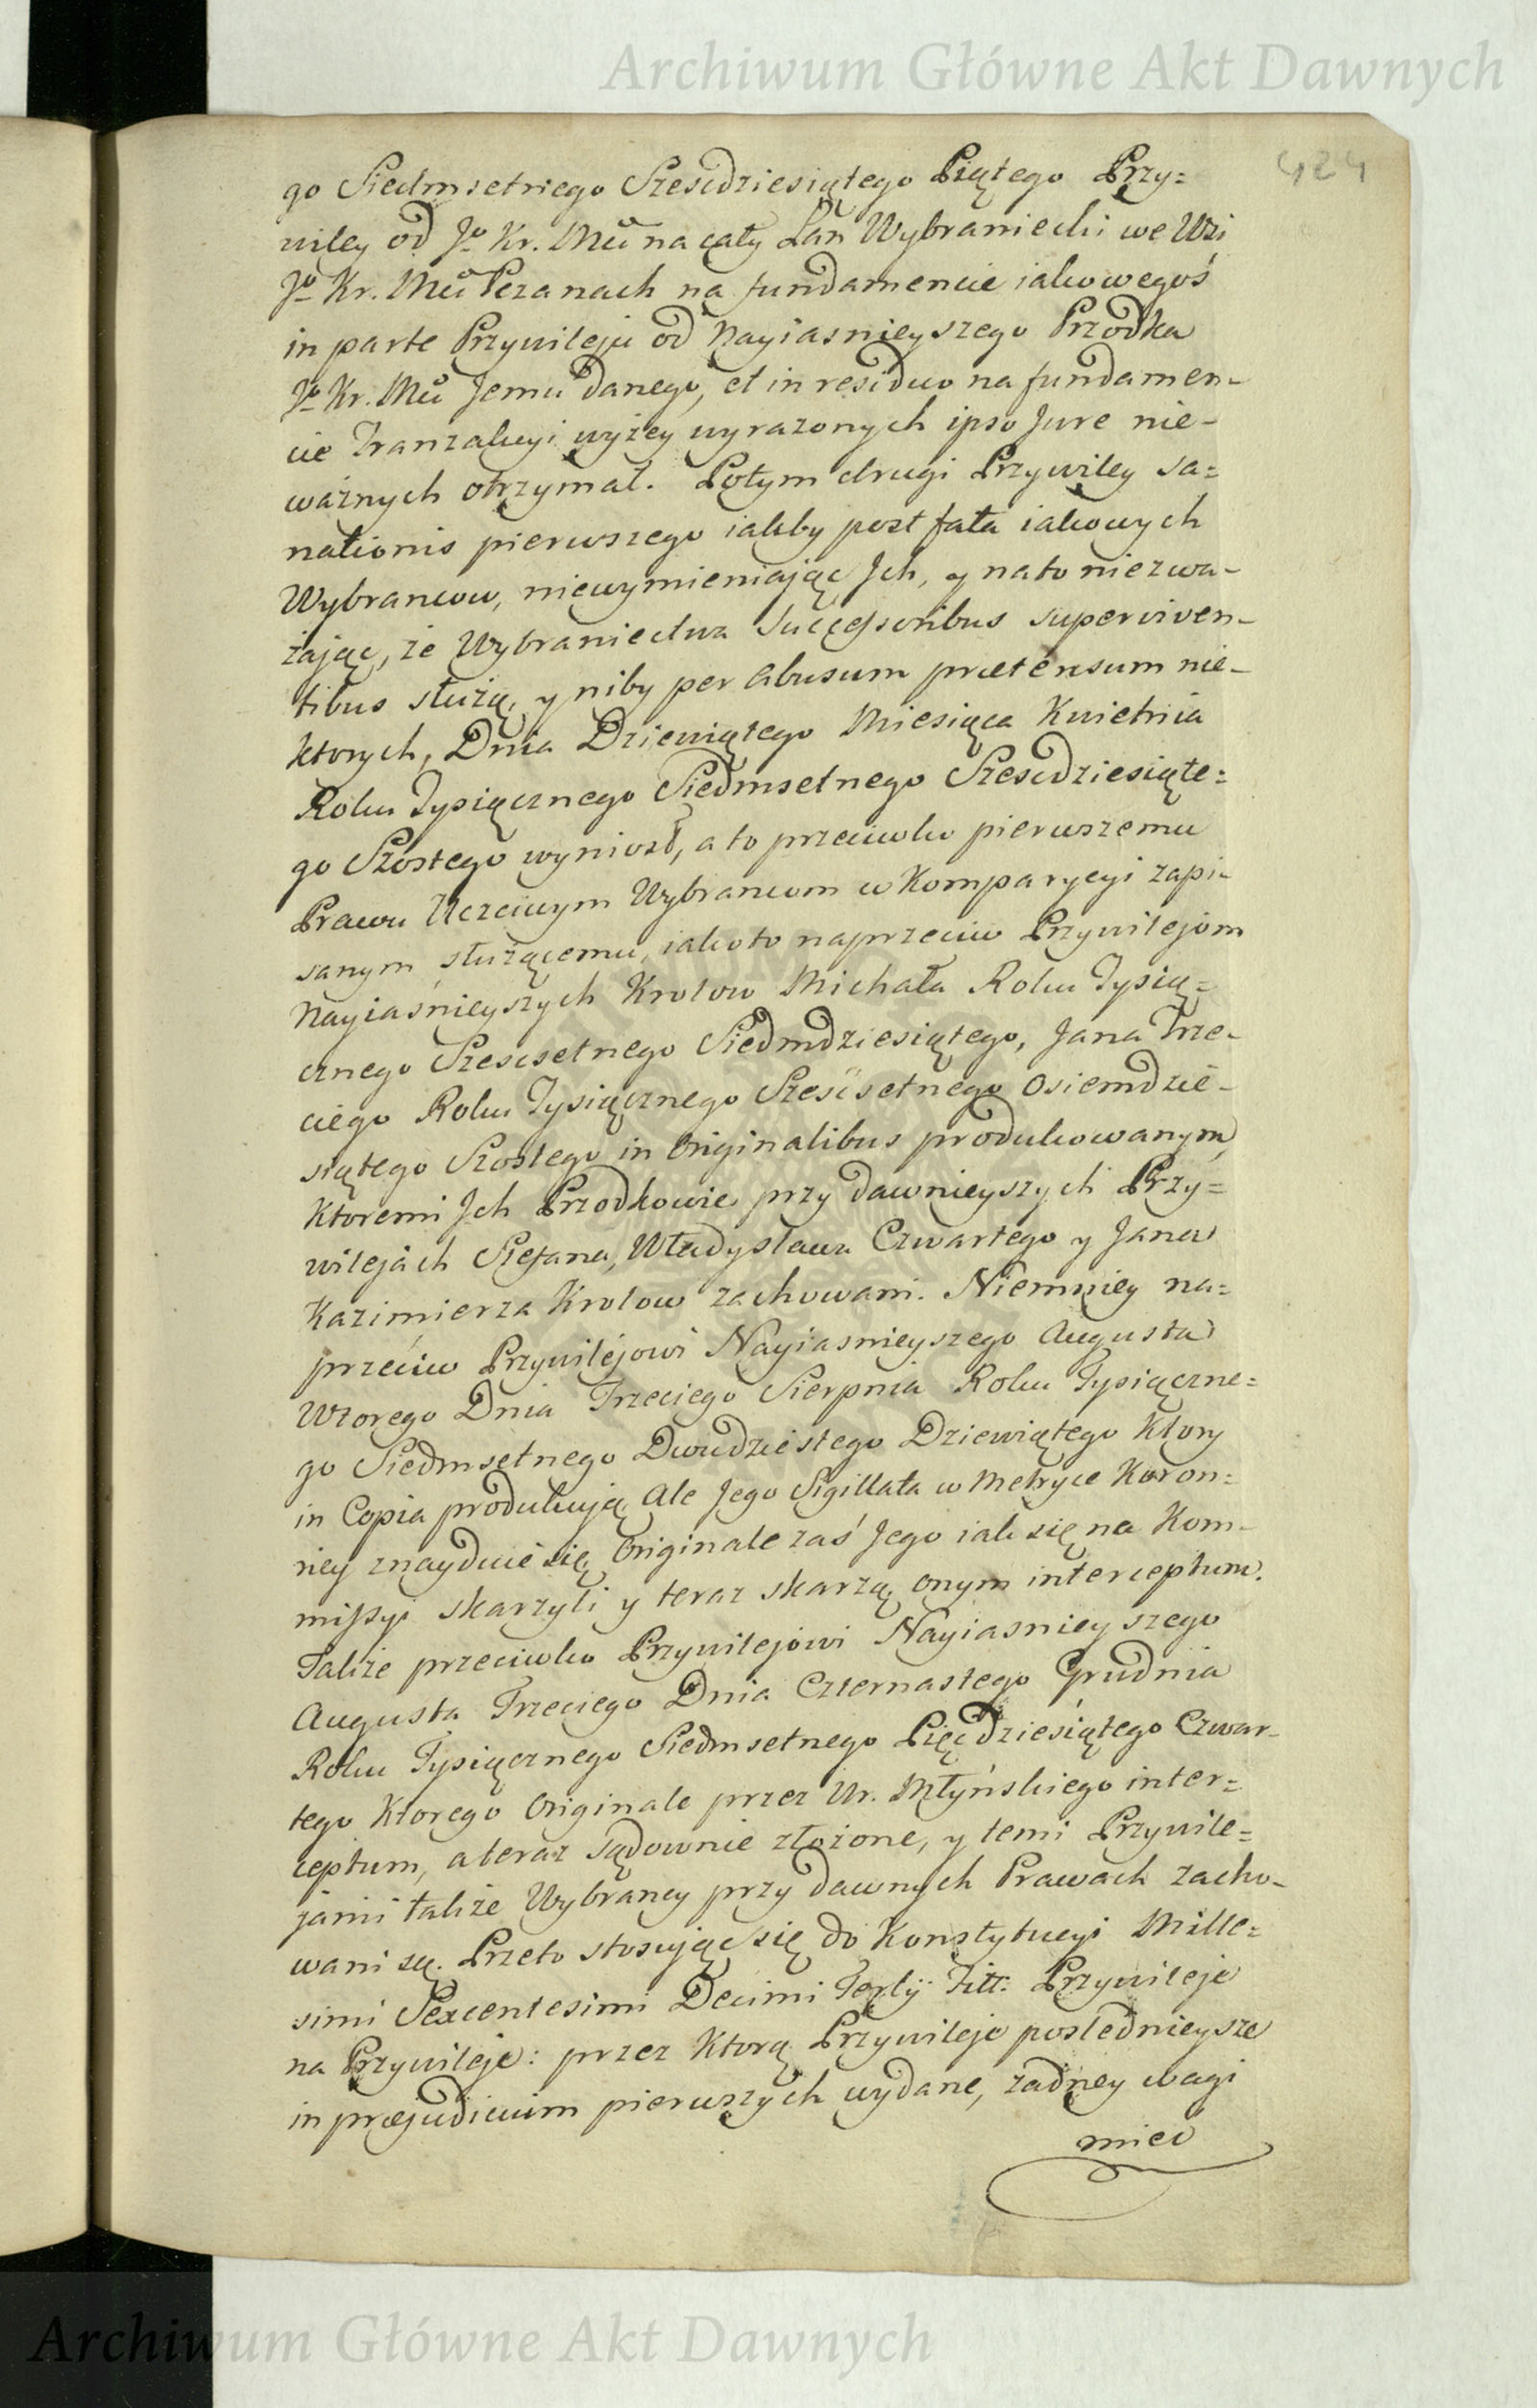 Archiwum Główne Akt Dawnych
424
go Siedmsetnego Szescdziesiątego Piątego Przy=
wiley od Jo Kr. Mci na cały Łan Wybraniecki we Wsi
Jo Kr. Mci Pczanach na fundamencie iakowegoś
in parte Przywileju od Nayiasnieyszego Przodka
Jo Kr. Mci Jemu danego, et in residuo na fundamen-
cie Tranzakcyi wyżey wyrazonych ipso Jure nie-
ważnych otrzymał. Potym drugi Przywiley sa=
nationis pierwszego iakby post fata iakowych
Wybrancow, niewymieniając Jch, y na to niezwa-
żając, że Wybraniectwa Successoribus superviven-
tibus służą, y niby per Abusum prætensum nie-
ktorych, Dnia Dziewiątego Miesiąca Kwietnia
Roku Tysiącznego Siedmsetnego Szescdziesiąte=
go Szostego wyniosł, a to przeciwko pierwszemu
Prawu Uczciwym Wybrancom w Komparycyi zapi-
sanym służącemu, iako to naprzeciw Przywilejom
Nayiaśnieyszych Krolow Michała Roku Tysią=
cznego Szescsetnego Siedmdziesiątego, Jana Trze-
ciego Roku Tysiącznego Szescsetnego Osiemdzie-
siątego Szostego in Originalibus produkowanym,
Ktoremi Jch Przodkowie przy dawnieyszych Przy=
wilejach Stefana, Władysława Czwartego y Jana
Kazimierza Krolow zachowani. Niemniey na=
przeciw Przywilejowi Nayiasnieyszego Augusta
Wtorego Dnia Trzeciego Sierpnia Roku Tysiączne=
go Siedmsetnego Dwudziestego Dziewiątego Ktory
in Copia produkują, Ale Jego Sigillata w Metryce Koron=
ney znayduie się, Originale zaś Jego iak się na Kom-
missyi skarzyli y teraz skarzą, onym interceptum.
Także przeciwko Przywilejowi Nayiasnieyszego
Augusta Trzeciego Dnia Czternastego Grudnia
Roku Tysiącznego Siedmsetnego Pięcdziesiątego Czwar-
tego Ktorego Originale przez Ur. Młyńskiego inter=
ceptum, a teraz sądownie złożone, y temi Przywile=
jami także Wybrancy przy dawnych Prawach zacho-
wani są. Przeto stosując się do Konstytucyi Mille=
simi Sexcentesimi Decimi Tertÿ Titt: Przywileje
na Przywileje: przez Ktorą Przywileje poslednieysze
in præjudicium pierwszych wydane, żadney wagi
mieć
Archiwum Główne Akt Dawnych